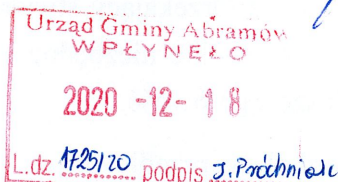 Urząd Gminy Abramów
WPŁYNĘŁO
2020 -12- 18
L.dz. 1725/20 podpis J. Próchniak